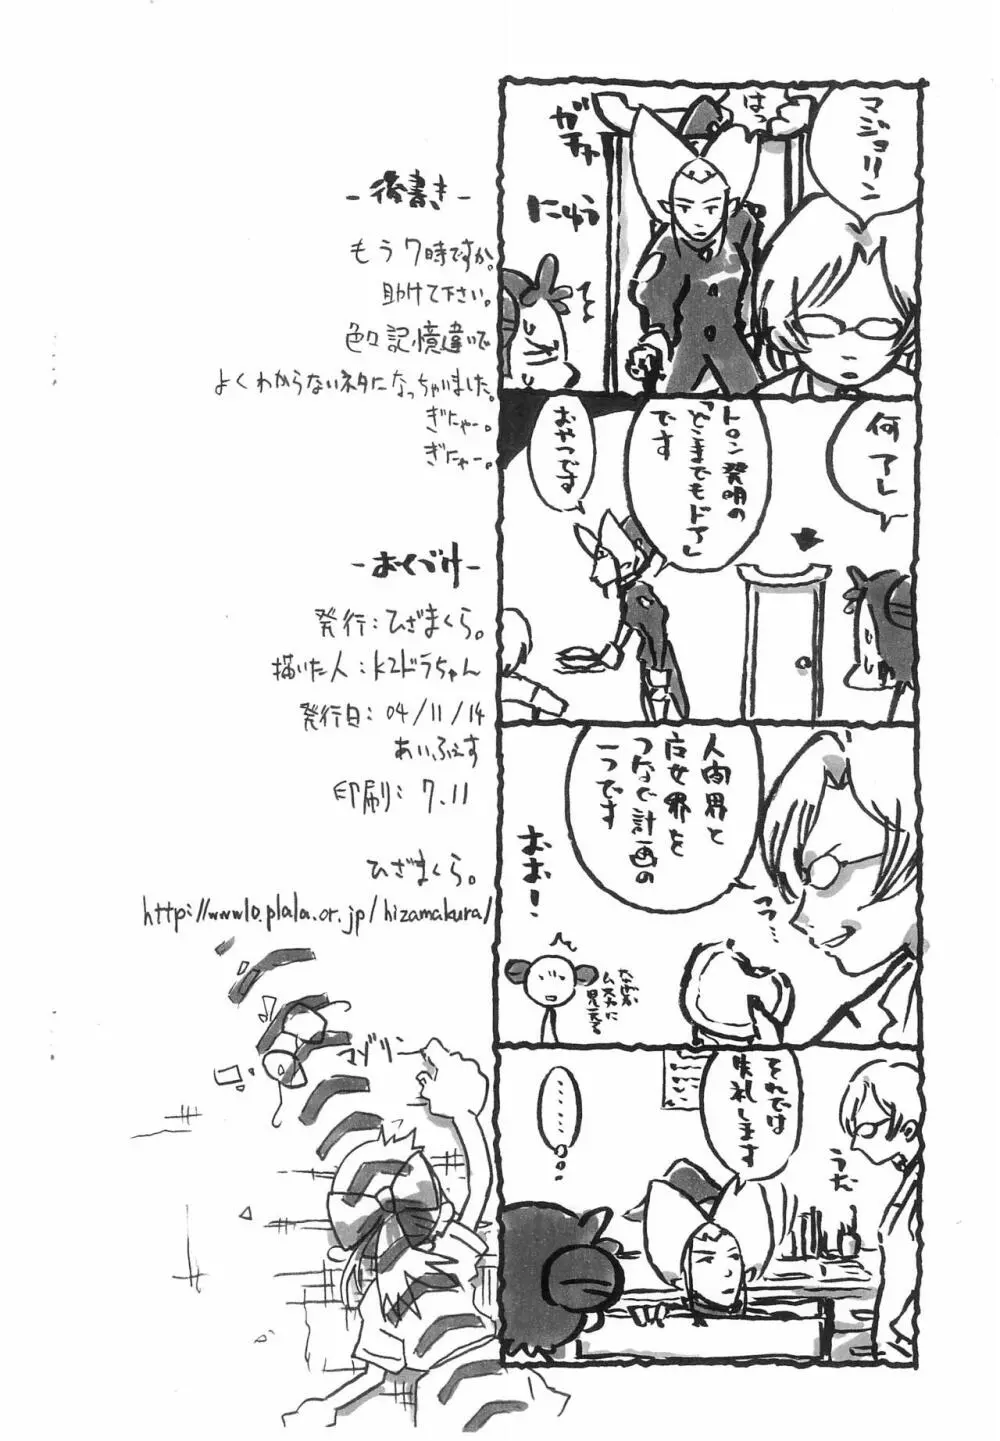 マジョリン
はっ
ガチャ
にゅう
何アレ
トロン発明の
「どこまでもドア」
です
おやつです
人間界と
魔女界を
つなぐ計画の
一つです
フフ…
おお!
なぜか
ムスカに
見える
それでは
失礼します
………
うむ
-後書き-
もう7時ですか。
助けて下さい。
色々記憶違いで
よくわからないネタになっちゃいました。
ぎにゃー。
ぎにゃー。
-おくづけ-
発行:ひざまくら。
描いた人:K2ドラちゃん
発行日:04/11/14
あいふぇす
印刷:7.11
ひざまくら。
http://www10.plala.or.jp/hizamakura/
マジョリン